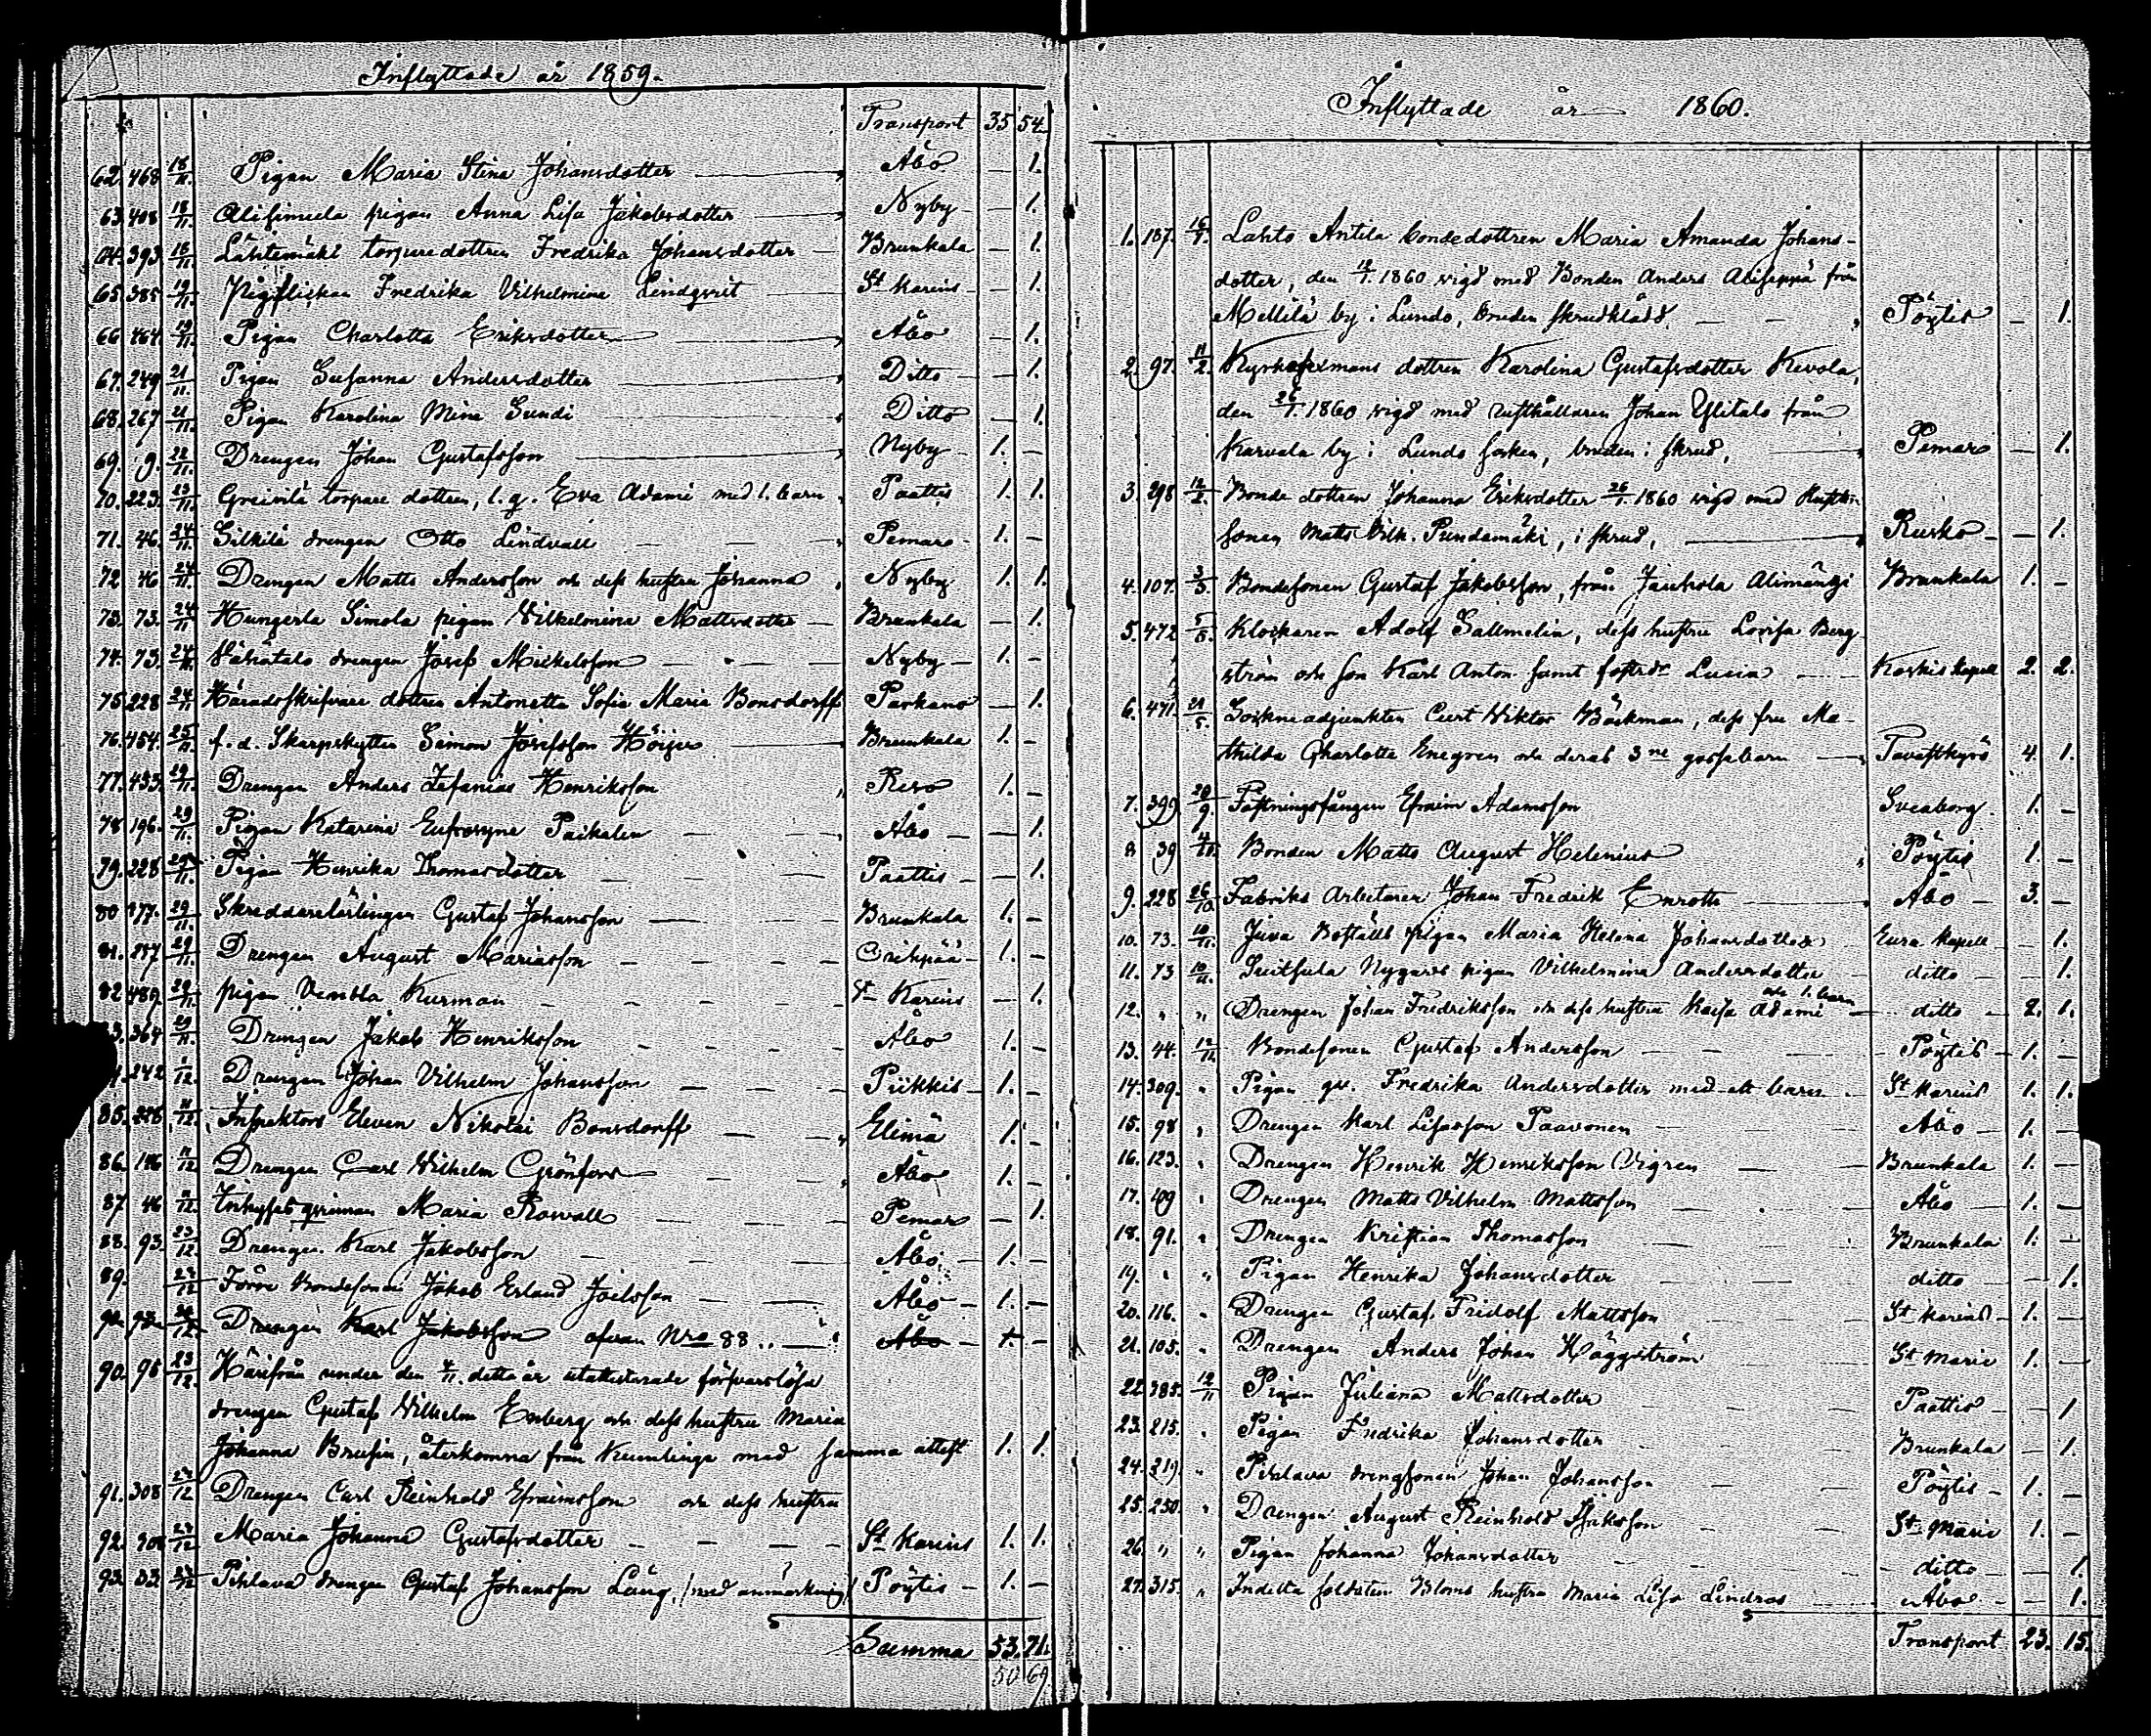 Inflyttade år 1859.
Transport 35 54
62. 468 18/11. Pigan Maria Stina Johansdotter Åbo — 1.
63. 408 18/11. Alisimula pigan Anna Lisa Jakobsdotter Nyby — 1.
64. 393. 18/11. Lähtemäki torparedottren Fredrika Johansdotter Brunkala — 1.
65. 385 19/11. Pigflickan Fredrika Vilhelmina Lindqvist St Karins — 1.
66 464. 19/11. Pigan Charlotta Eriksdotter Åbo — 1.
67. 249 21/11. Pigan Susanna Andersdotter Ditto — 1.
68. 267 21/11. Pigan Karolina Mina Sundi Ditto — 1.
69. 9. 22/11. Drengen Johan Gustafsson Nyby 1. —
70. 223. 23/11. torpare dottren, l. q. Eva Adami med 1. barn Paattis 1. 1.
71. 46. 24/11. Silkilä drengen Otto Lindvall Pemar 1. —
72 46 24/11. Drengen Matts Andersson och dess hustru Johanna Nyby 1. 1.
73. 73. 24/11 Hungerla Simola pigan Vilhelmina Mattsdotter Brunkala — 1.
74. 73. 24/11. Vähätalo drengen Josef Mickelsson Nyby 1. —
75 228 24/11 Häradsskrifvare dottren Antonetta Sofia Maria Bonsdorff Parkano — 1.
76. 454. 25/11 f. d. Skarpskytten Simon Josefsson Höijer Brunkala 1. —
77. 433. 29/11. Drengen Anders Zefanias Henriksson Reso 1. —
78 196. 29/11. Pigan Katarina Eufrosyne Paikalen Åbo — 1.
79. 228 29/11. Pigan Henrika Thomasdotter Paattis — 1.
80 177. 29/11. Skreddarelärlingen Gustaf Johansson Brunkala 1. —
81. 287 29/11. Drengen August Mariasson Oripää 1. —
82 489 29/11. pigan Vendla Kurman St Karins — 1.
364 29/11. Drengen Jakob Henriksson Åbo 1. —
242 /12. Drengen Johan Vilhelm Johansson Piikkis 1. —
85. 228 11/12. Inspektors Eleven Nikolai Bonsdorff Elimä 1. —
86. 146 11/12 Drengen Carl Vilhelm Grönfors Åbo 1. —
87. 46 11/12. qvinnan Maria Rowall Pemar — 1.
88. 93. 23/12. Drengen Karl Jakobsson Åbo 1. —
89. 23/12 Jorve Bondesonen Jakob Erland Joelsson Åbo 1. —
Drengen Karl Jakobsson ofvan Nro 88 Åbo
90. 98 23/12. Härifrån under den /11. detta år utattesterade försvarslösa
drengen Gustaf Vilhelm Enberg och dess hustru Maria
Johanna Brusin, återkomna från Kumlinge med samma attest 1. 1.
91. 308 27/12 Drengen Carl Reinhold Efraimsson och dess hustru
92. 308 27/12 Maria Johanna Gustafsdotter St Karins 1. 1.
93. 33. Pihlava drengen Gustaf Johansson Lång, (med anmärkning) Pöytis 1. —
Summa 53. 71.
50 69
Inflyttade år 1860.
1. 187. 16/1. Lahto Antila bondedottren Maria Amanda Johans-
dotter, den /1. 1860 vigd med Bonden Anders från
Mellilä by i Lundo, bruden skrudklädd. Pöytis — 1.
2. 97. 11/2. Kyrkosexmans dottren Karolina Gustafsdotter Kevola,
den 26/1. 1860 vigd med rusthållaren Johan Ylitalo från
Karvala by i Lundo socken, bruden i skrud, Pemar — 1.
3. 298 12/2. Bonde dottren Johanna Eriksdotter 26/1. 1860 vigd med
sonen Matts Vilh. Pundamäki, i skrud, Rusko — 1.
4. 107. 3/3. Bondesonen Gustaf Jakobsson, från Jauhola Alimängi Brunkala 1. —
5. 472 5/5. Klockaren Adolf Sallmelin, dess hustru Lovisa Berg-
ström och son Karl Anton samt fosterdr Lucia Koskis kapell 2. 2.
6. 471. 21/5. Sockneadjunkten Curt Viktor Bäckman, dess fru Ma-
thilda Charlotta Enegren och deras 3ne gossebarn Tavastkyrö 4. 1.
7. 399 20/9. Fästningsfången Efraim Adamsson Sveaborg. 1. —
8 39 4/10. Bonden Matts August Helenius Pöytis 1. —
9. 228 26/10. Fabriks Arbetaren Johan Fredrik Enroth Åbo 3. —
10. 73. 10/11. Juva Boställs pigan Maria Helena Johansdotter Eura Kapell — 1.
11. 73 10/11. Suitsula Nygårds pigan Vilhelmina Andersdotter ditto — 1.
12. " " Drengen Johan Fredriksson och dess hustru Kaisa Adami och 1. barn ditto 2. 1.
13. 44. 12/11. Bondesonen Gustaf Andersson Pöytis 1. —
14. 309. " Pigan qv. Fredrika Andersdotter med ett barn St Karins 1. 1.
15. 98 " Drengen Karl Lisasson Paavonen Åbo 1. —
16. 123. " Drengen Henrik Henriksson Vigren Brunkala 1. —
17. 109 " Drengen Matts Vilhelm Mattsson Åbo 1. —
18. 91. " Drengen Kristian Thomasson Brunkala 1. —
19. " " Pigan Henrika Johansdotter ditto — 1.
20. 116. " Drengen Gustaf Fridolf Mattsson St Karins 1. —
21. 105. " Drengen Anders Johan Häggström St Marie 1. —
22 385. 12/11 Pigan Juliana Mattsdotter Paattis — 1
23. 215. " Pigan Fredrika Johansdotter Brunkala — 1.
24. 219. " Pihlava drengsonen Johan Johansson Pöytis 1. —
25. 250. " Drengen August Reinhold Isaksson St Marie 1. —
26. " " Pigan Johanna Johansdotter ditto — 1.
27. 315. " Indelta soldaten Bloms hustru Maria Lisa Lindros Åbo — 1.
Transport 23. 15.